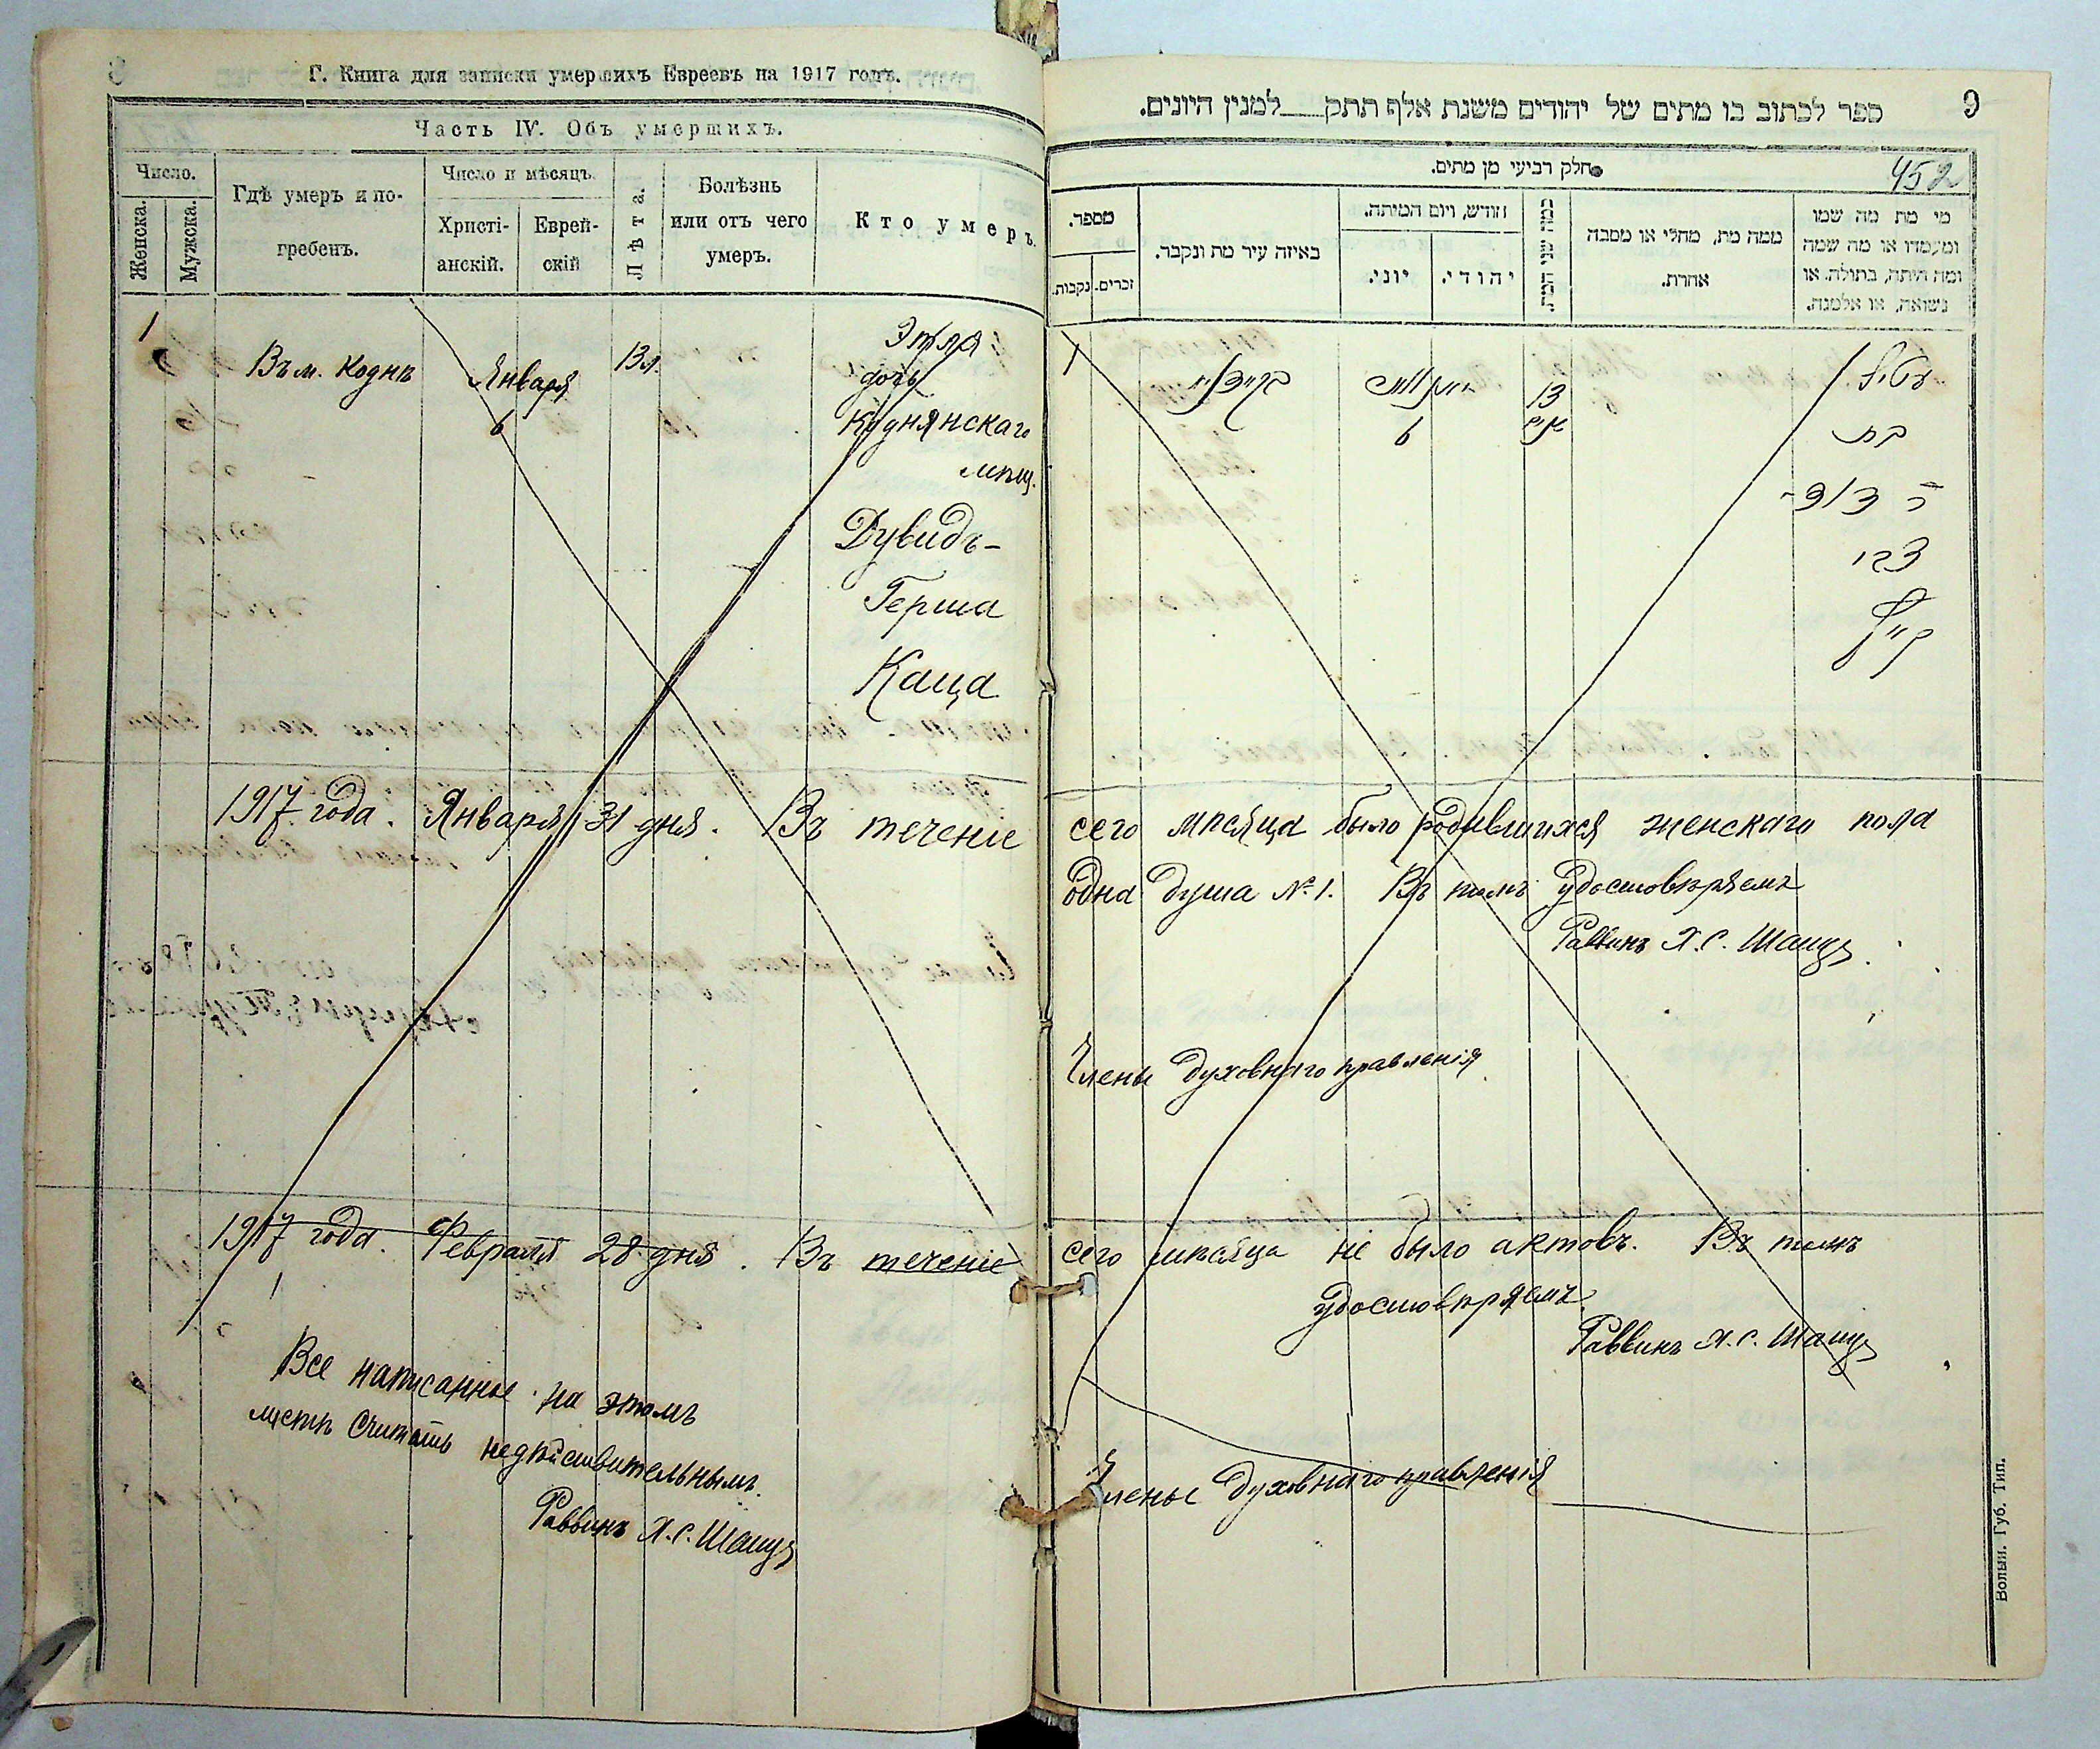 Г. Книга для записки умершихъ Евреевъ на 1917 годъ.
Часть IV. Объ умершихъ.
Число.
Женска.
Мужска.
Гдѣ умеръ и по-
гребенъ.
Число и мѣсяцъ.
Христі-
анскій.
Еврей-
скій
Лѣта.
Болѣзнь
или отъ чего
умеръ.
Кто умеръ.
1
Въ м. Коднѣ
Января
6
13 л.
Этля
дочь
Коднянскаго
мѣщ.
Дувидъ-
Герша
Каца
1917 года. Января 31 дня. Въ теченіе
1917 года. Февраля 28 дня. Въ теченіе
Все написанные на этомъ
листѣ считать недѣйствительнымъ.
Раввинъ Х. С. Шапиръ
ספר לכתוב בו מתים של יהודים משנת אלף תתק למנין היונים.
9
חלק רביעי מן מתים.
452
מספר.
נקבות.
זכרים.
באיזה עיר מת ונקבר.
חודש, ויום המיתה.
יוני.
יהודי.
כמה שני המת.
ממה מת, מחלי או מסבה
אחרת.
מי מת מה שמו
ומעמדו או מה שמה
ומה היתה, בתולה, או
נשואה, או אלמנה.
1
6
13
בת
ר דוד
צבי
סего мѣсяца было родившихся женскаго пола
одна душа № 1. Въ томъ удостовѣряемъ
Раввинъ Х. С.
Члены духовнаго правленія
сего мѣсяца не было актовъ. Въ томъ
удостовѣряемъ
Раввинъ Х. С.
Члены духовнаго правленія
Волын. Губ. Тип.